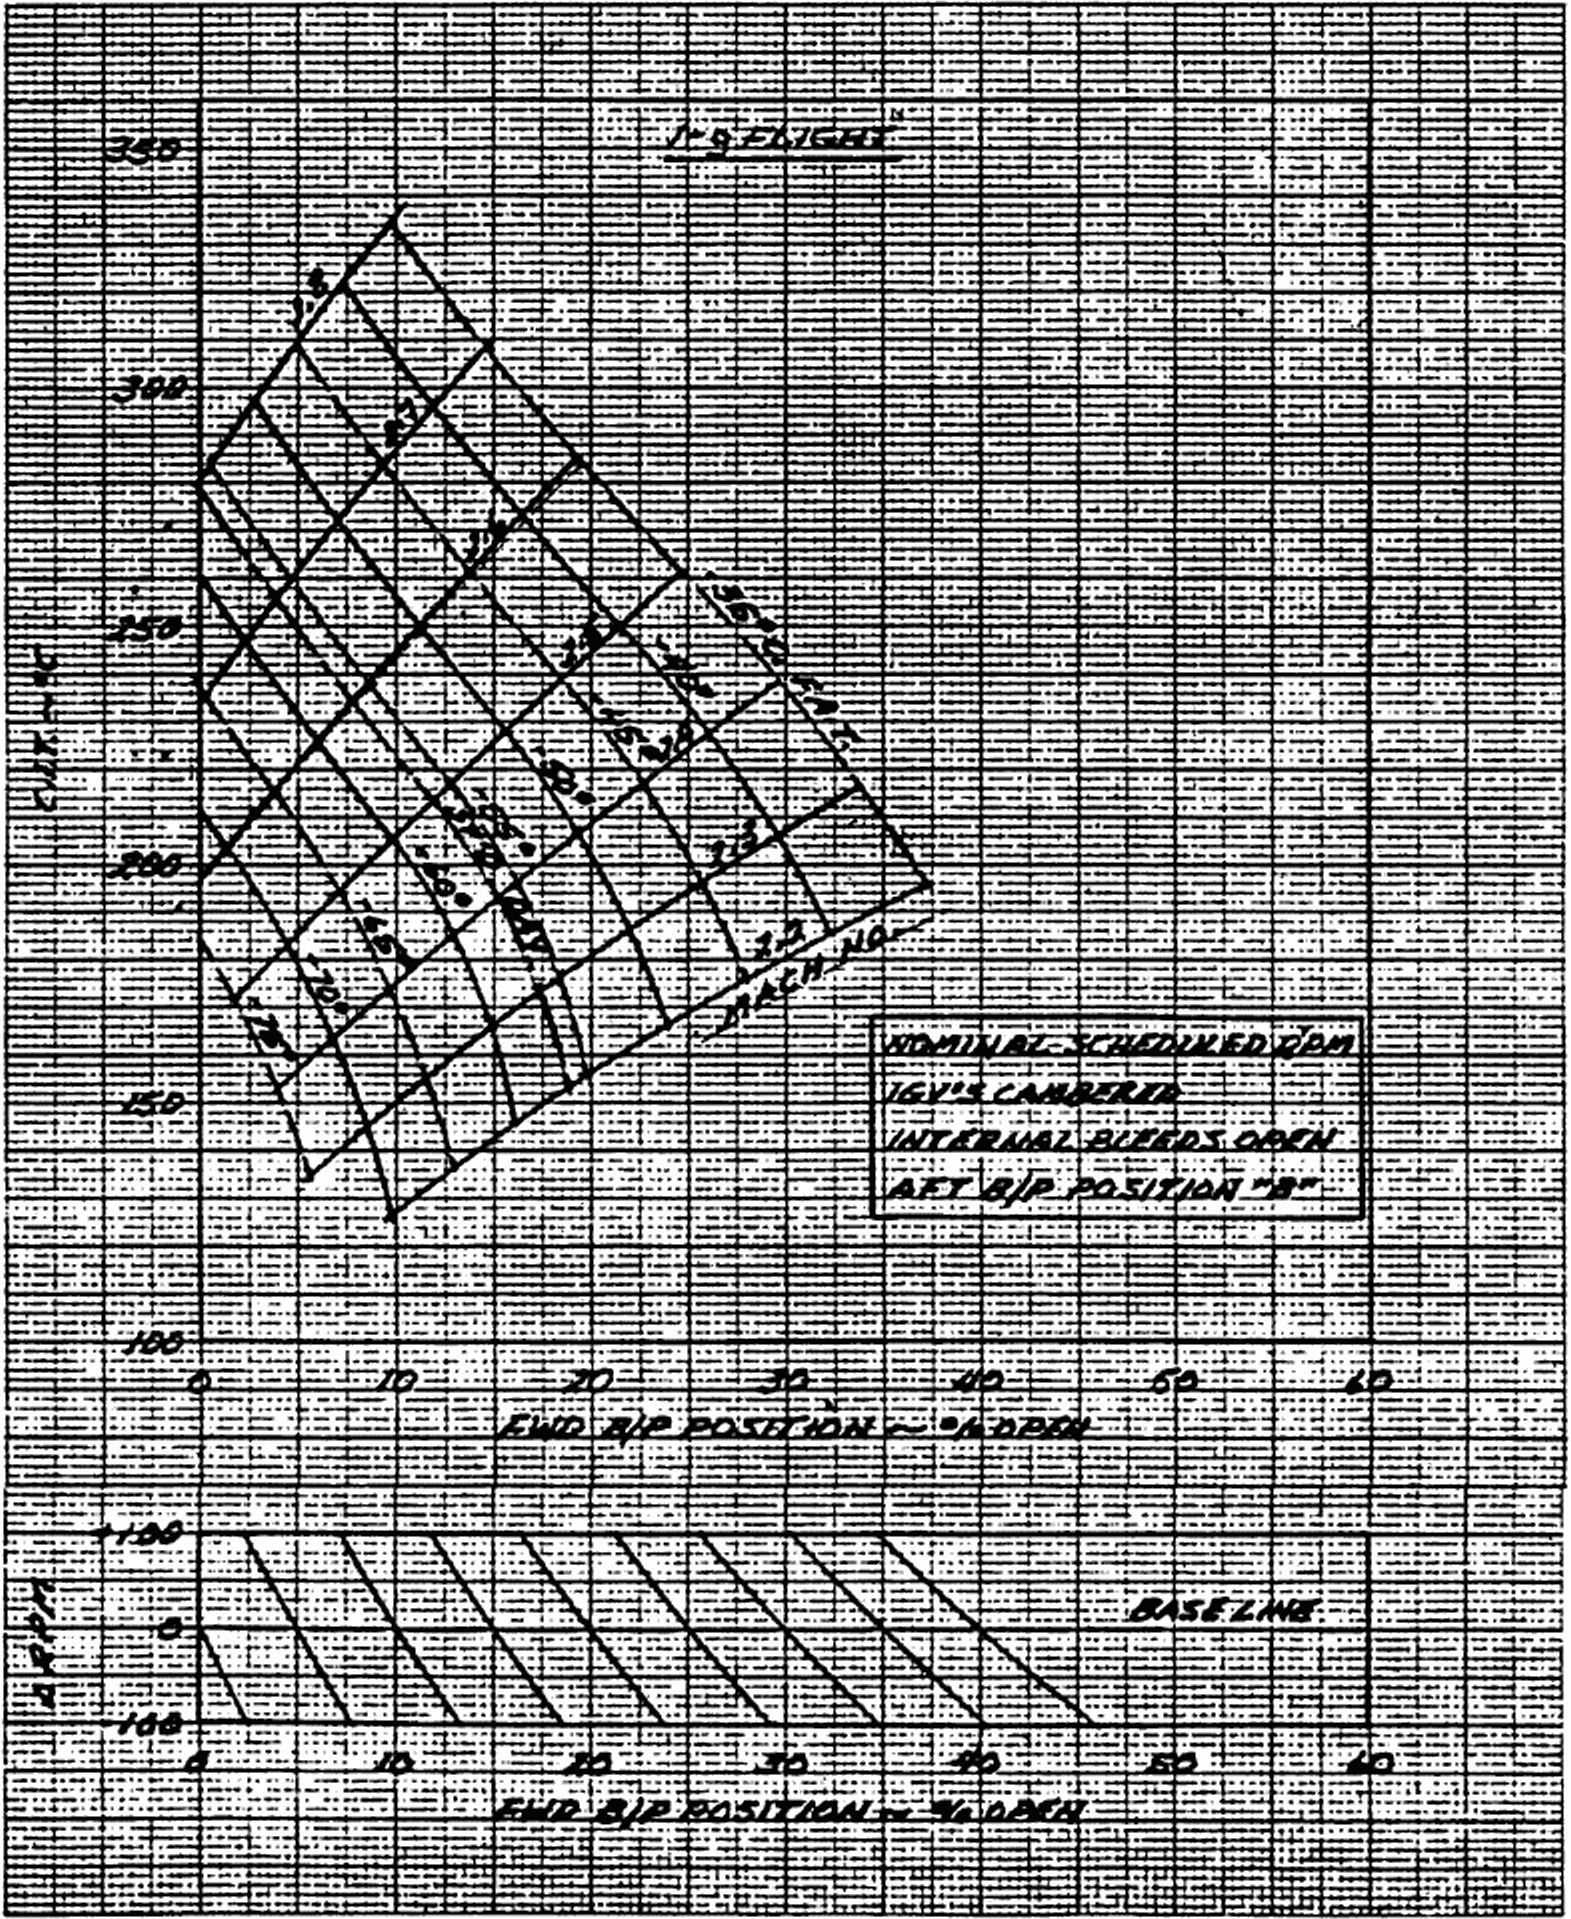 1-g FLIGHT
350
300
250
200
150
100
C.I.T. ~ °C
2.8
2.7
2.6
2.5
2.4
2.3
2.2
MACH NO.
-36°C F.A.T.
-40°
-45°
-50°
-55°
STD DAY
-60°
-65°
-70°
-75°
NOMINAL SCHEDULED RPM
IGV'S CAMBERED
INTERNAL BLEEDS OPEN
AFT B/P POSITION "B"
0 10 20 30 40 50 60
FWD B/P POSITION ~ % OPEN
+100
0
-100
Δ RPM
BASE LINE
0 10 20 30 40 50 60
FWD B/P POSITION ~ % OPEN